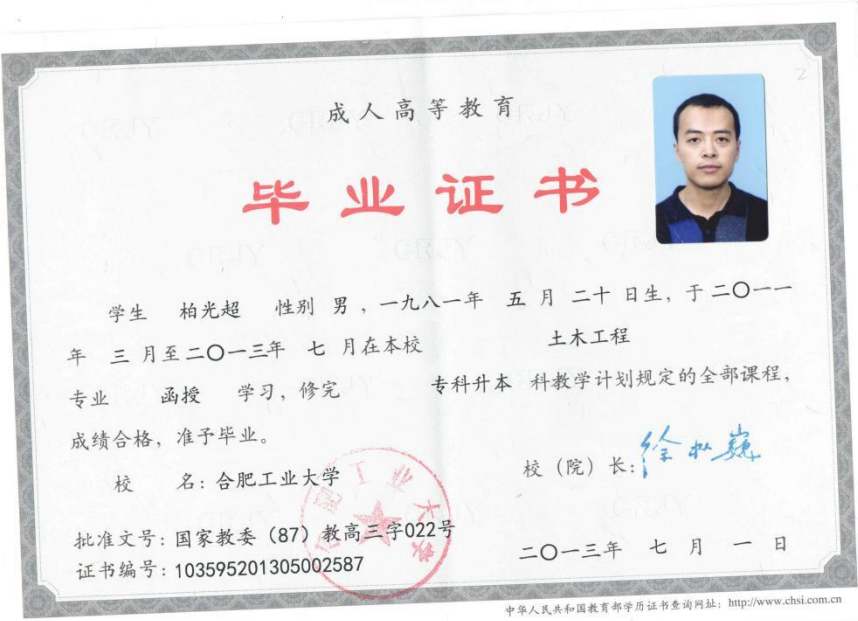 成人高等教育
毕业证书
学生 柏光超 性别 男，一九八一年 五 月 二十 日生，于二〇一一
年 三 月至二〇一三年 七 月在本校 土木工程
专业 函授 学习，修完 专科升本 科教学计划规定的全部课程，
成绩合格，准予毕业。
校 名：合肥工业大学
校（院）长：徐枞巍
批准文号：国家教委（87）教高三字022号
证书编号：103595201305002587
二〇一三年 七 月 一 日
中华人民共和国教育部学历证书查询网址：http://www.chsi.com.cn